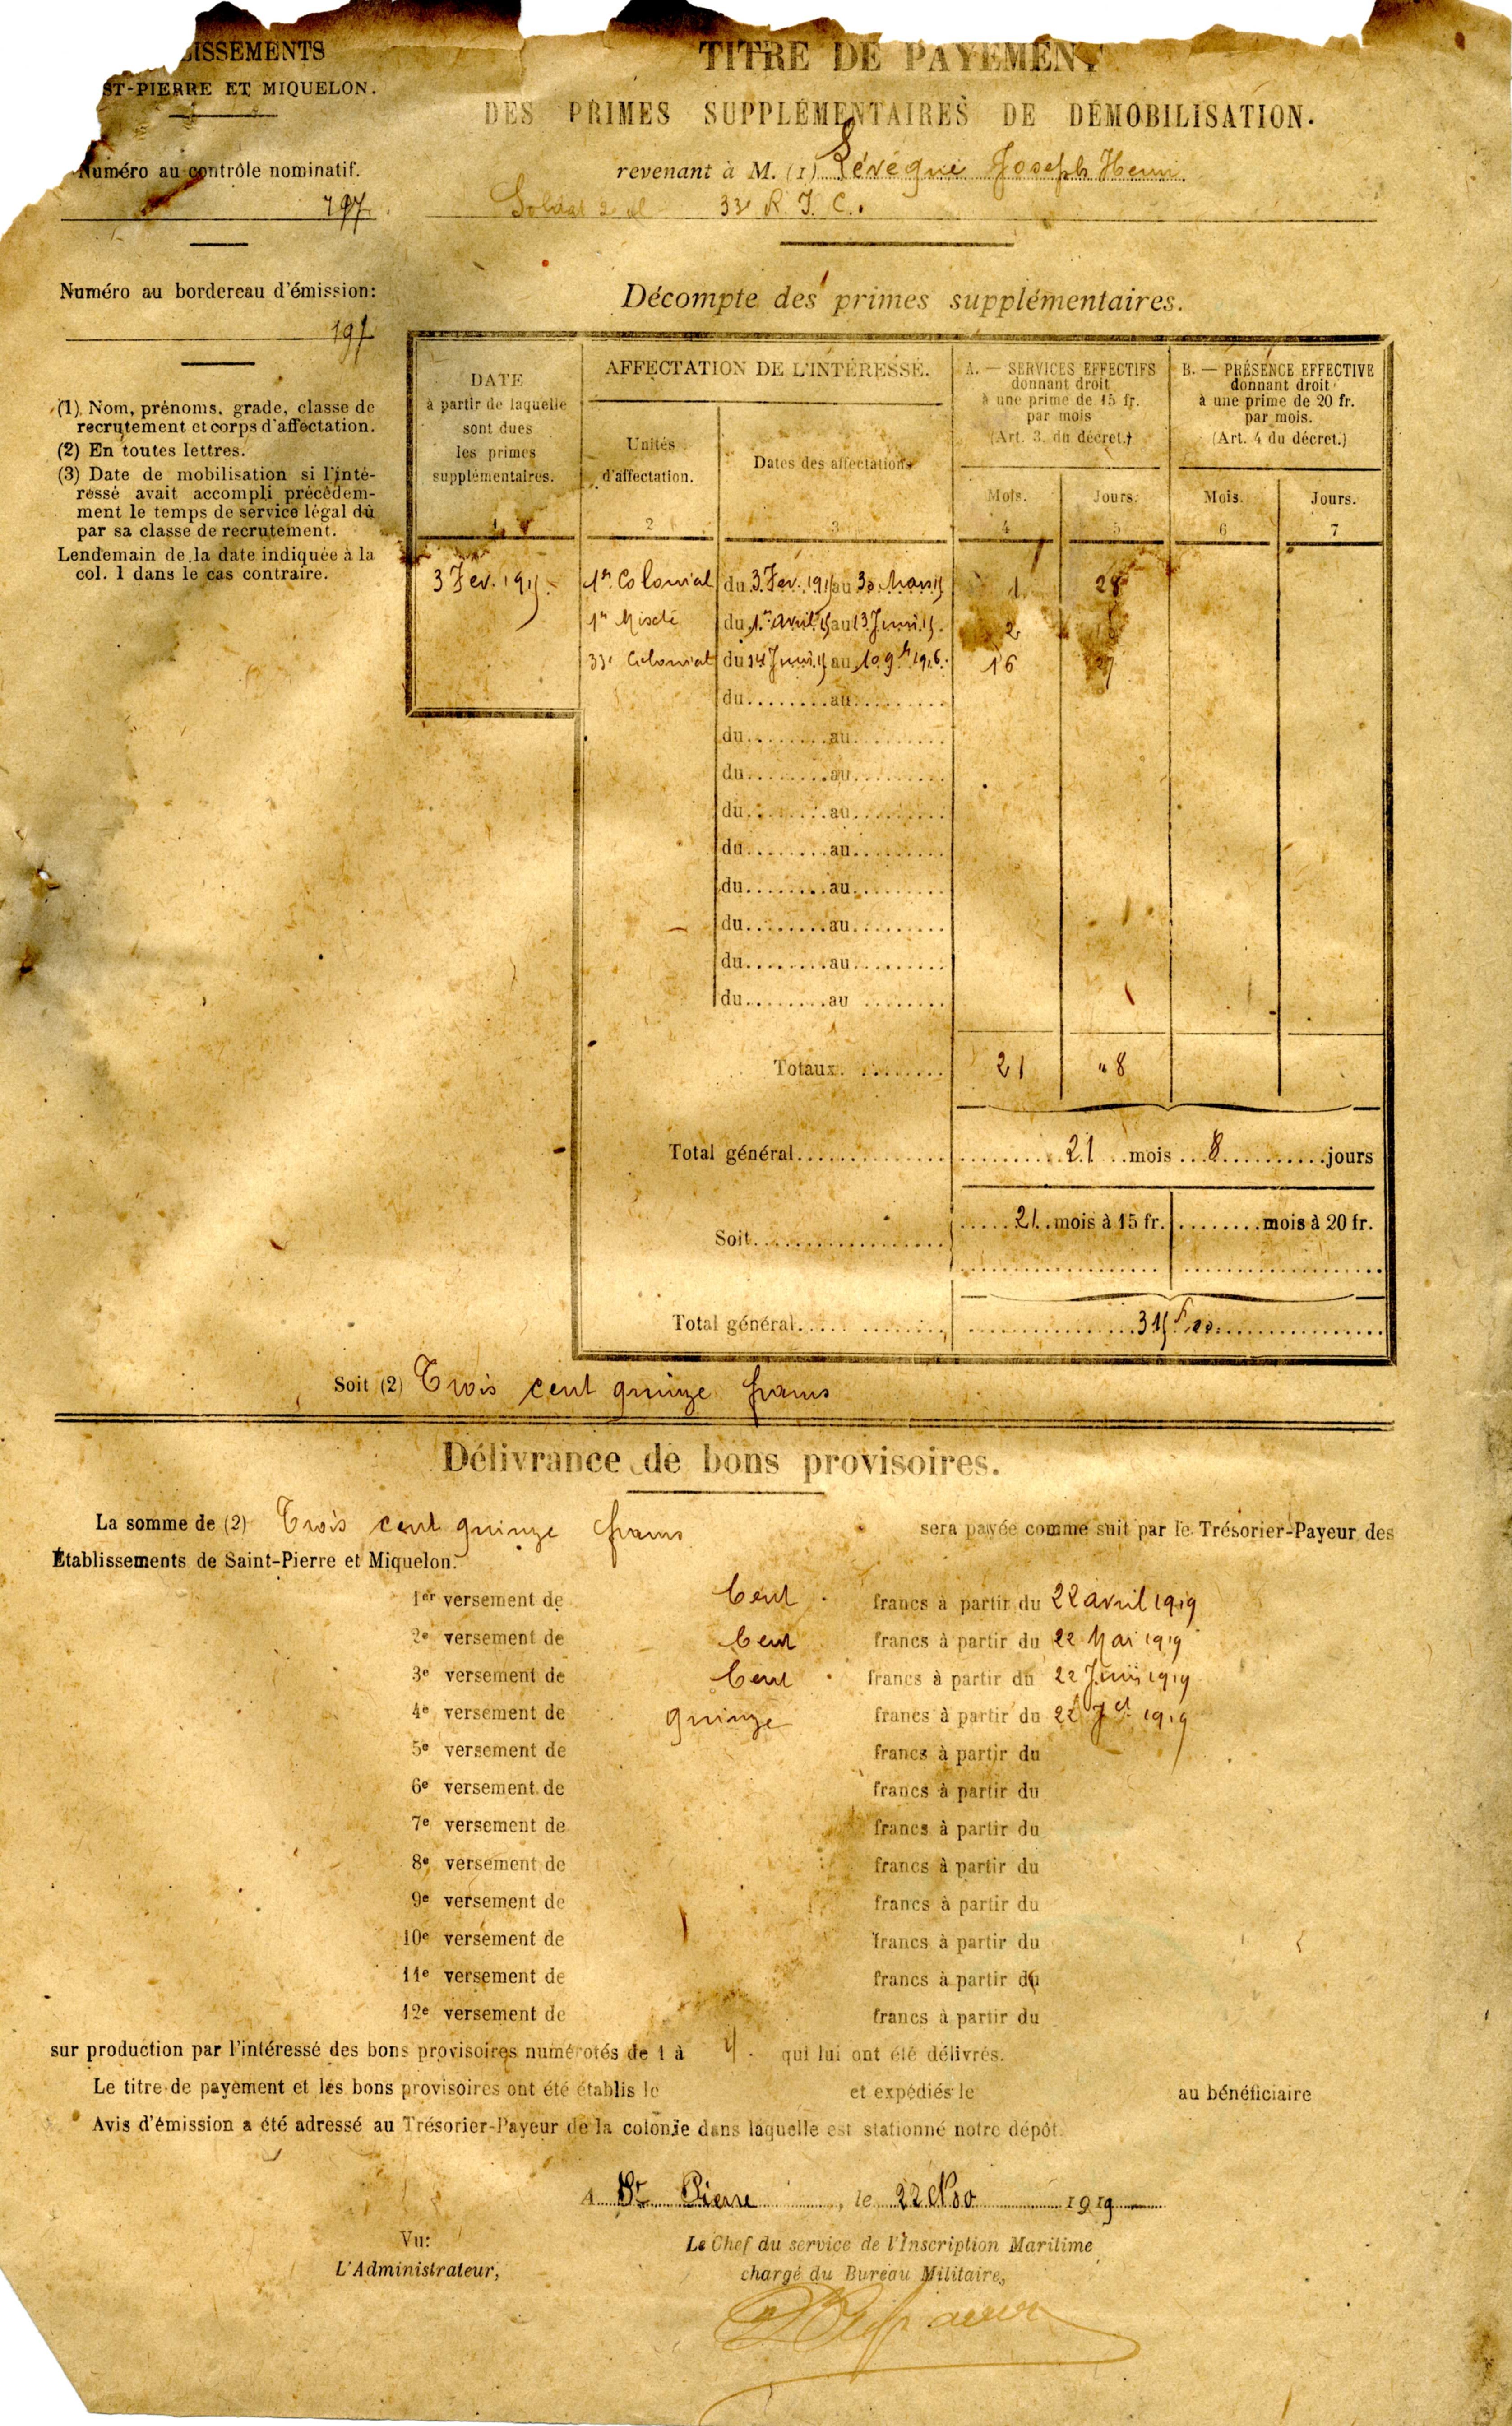 LISSEMENTS
ST-PIERRE ET MIQUELON.
Numéro au contrôle nominatif.
197
Numéro au bordereau d'émission:
197
(1) Nom, prénoms, grade, classe de
recrutement et corps d'affectation.
(2) En toutes lettres.
(3) Date de mobilisation si l'inté-
ressé avait accompli précédem-
ment le temps de service légal dû
par sa classe de recrutement.
Lendemain de la date indiquée à la
col. 1 dans le cas contraire.
TITRE DE PAYEMENT
DES PRIMES SUPPLÉMENTAIRES DE DÉMOBILISATION.
revenant à M. (1) Lévêque Joseph Henri
Soldat 2e cl 33e R. I. C.
Décompte des primes supplémentaires.
DATE
à partir de laquelle
sont dues
les primes
supplémentaires.
1
AFFECTATION DE L'INTÉRESSÉ.
Unités
d'affectation.
2
Dates des affectations
3
A. — SERVICES EFFECTIFS
donnant droit
à une prime de 15 fr.
par mois
(Art. 3. du décret.)
Mois. Jours.
4 5
B. — PRÉSENCE EFFECTIVE
donnant droit
à une prime de 20 fr.
par mois.
(Art. 4 du décret.)
Mois. Jours.
6 7
3 Fev. 1915. 1er Colonial du 3 Fev. 1915 au 30 Mars 15 1 28
1er Mixte du 1er Avril 15 au 13 Juin 15. 2
33e Colonial du 14 Juin 15 au 10 9bre 1916. 16 27
du........au.........
du........au.........
du........au.........
du........au.........
du........au.........
du........au.........
du........au.........
du........au.........
du........au.........
Totaux......... 21 " 8
Total général.............. 21 mois 8 jours
Soit.................. 21 mois à 15 fr. ........mois à 20 fr.
Total général.............. 315 F
Soit (2) Trois cent quinze francs
Délivrance de bons provisoires.
La somme de (2) Trois cent quinze francs sera payée comme suit par le Trésorier-Payeur des
Établissements de Saint-Pierre et Miquelon.
1er versement de Cent francs à partir du 22 avril 1919
2e versement de Cent francs à partir du 22 Mai 1919
3e versement de Cent francs à partir du 22 Juin 1919
4e versement de quinze francs à partir du 22 Jet 1919
5e versement de francs à partir du
6e versement de francs à partir du
7e versement de francs à partir du
8e versement de francs à partir du
9e versement de francs à partir du
10e versement de francs à partir du
11e versement de francs à partir du
12e versement de francs à partir du
sur production par l'intéressé des bons provisoires numérotés de 1 à 4. qui lui ont été délivrés.
Le titre de payement et les bons provisoires ont été établis le et expédiés le au bénéficiaire
Avis d'émission a été adressé au Trésorier-Payeur de la colonie dans laquelle est stationné notre dépôt.
A St Pierre, le 22 1919
Vu:
L'Administrateur,
Le Chef du service de l'Inscription Maritime
chargé du Bureau Militaire,